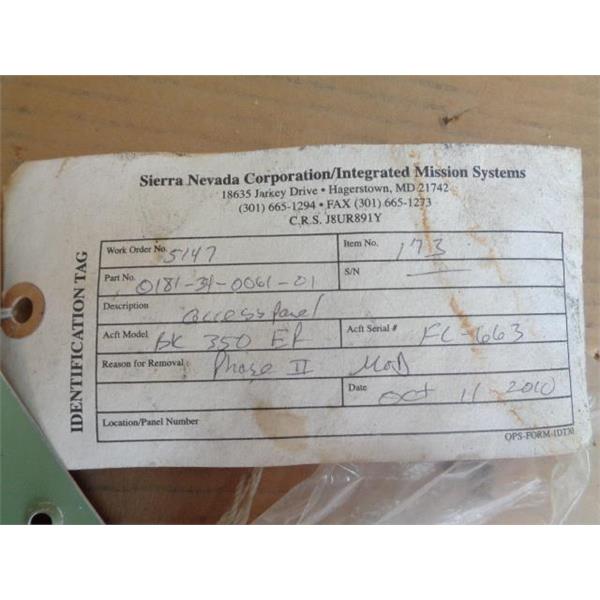 Sierra Nevada Corporation/Integrated Mission Systems
18635 Jarkey Drive • Hagerstown, MD 21742
(301) 665-1294 • FAX (301) 665-1273
C.R.S. J8UR891Y
IDENTIFICATION TAG
Work Order No. 5147 Item No. 173
Part No. 0181-34-0061-01 S/N —
Description access panel
Acft Model BK 350 ER Acft Serial # FL-663
Reason for Removal Phase II Mod
Date Oct 11 2010
Location/Panel Number
OPS-FORM-1DTX0